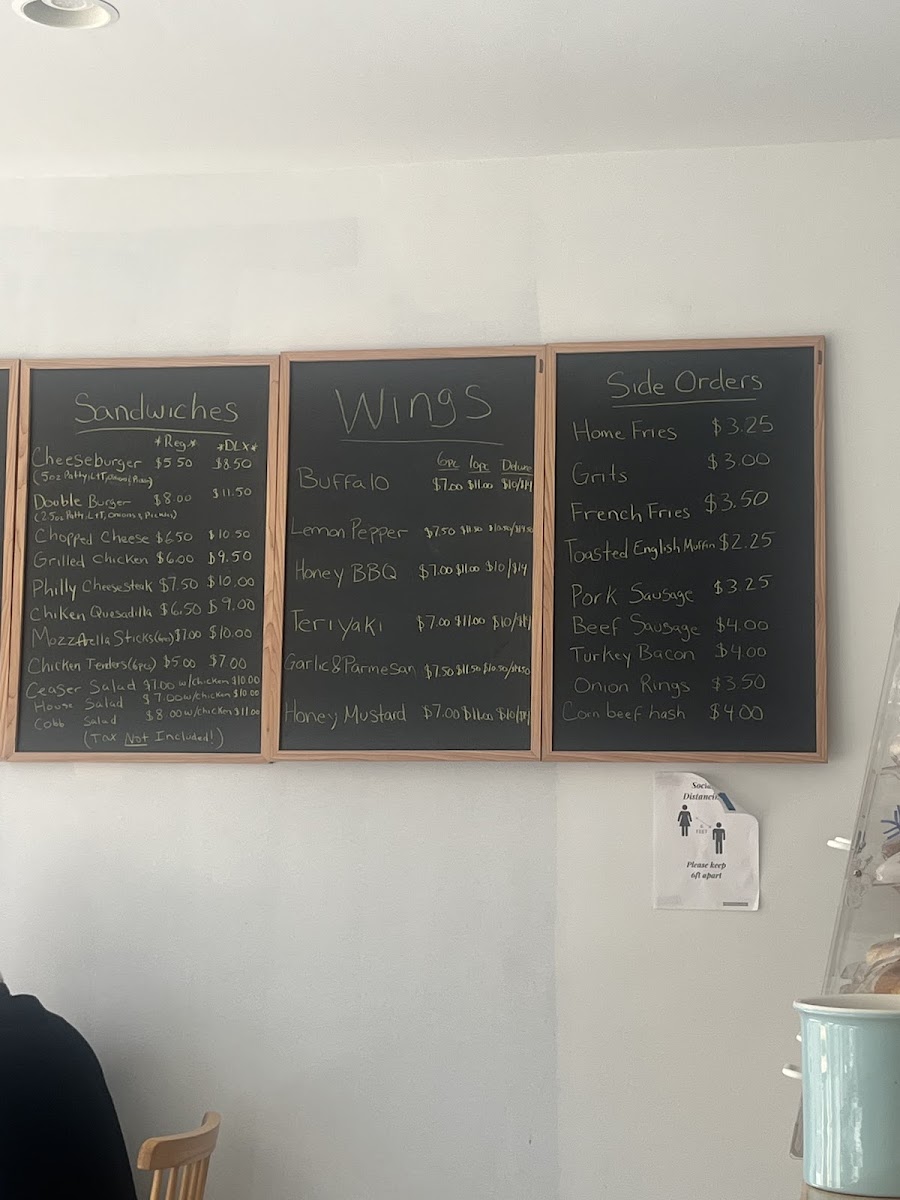 Sandwiches
*Reg* *DLX*
Cheeseburger $5.50 $8.50
(5oz Patty, L+T,
Double Burger $8.00 $11.50
(2 5oz Patti, L+T, Onions & Pickles)
Chopped Cheese $6.50 $10.50
Grilled Chicken $6.00 $9.50
Philly Cheesesteak $7.50 $10.00
Chiken Quesadilla $6.50 $9.00
Mozzarella Sticks(6pc) $7.00 $10.00
Chicken Tenders(6pcs) $5.00 $7.00
Ceaser Salad $7.00 w/chicken $10.00
House Salad $7.00 w/chicken $10.00
Cobb Salad $8.00 w/chicken $11.00
(Tax Not Included!)
Wings
6pc 10pc Deluxe
Buffalo $7.00 $11.00 $10/$14
Lemon Pepper $7.50 $11.50 $10.50/$14.50
Honey BBQ $7.00 $11.00 $10/$14
Teriyaki $7.00 $11.00 $10/$14
Garlic&Parmesan $7.50 $11.50 $10.50/$14.50
Honey Mustard $7.00 $11.00 $10/$14
Side Orders
Home Fries $3.25
Grits $3.00
French Fries $3.50
Toasted English Muffin $2.25
Pork Sausage $3.25
Beef Sausage $4.00
Turkey Bacon $4.00
Onion Rings $3.50
Corn beef hash $4.00
Social
Distancin
6
FEET
Please keep
6ft apart